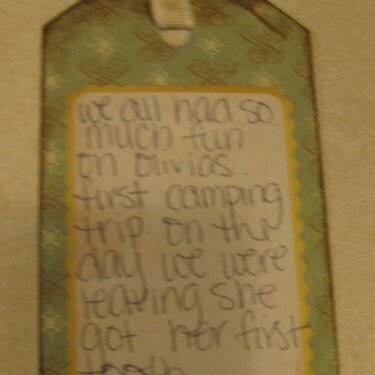 we all had so
much fun
on olivias.
first camping
trip on the
day we were
leaving she
got her first
tooth